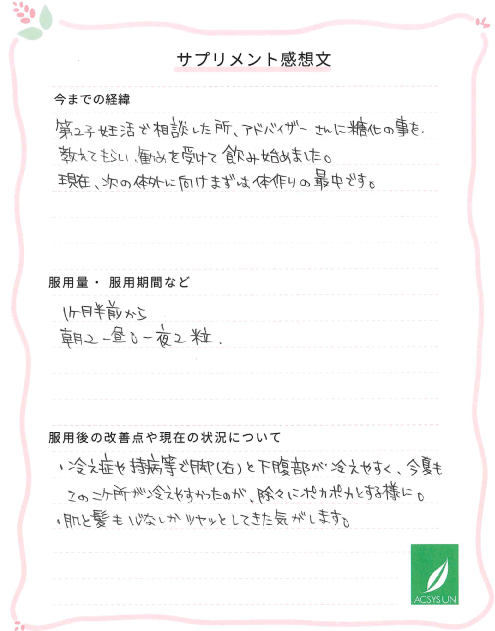 サプリメント感想文
今までの経緯
第2子妊活で相談した所、アドバイザーさんに糖化の事を
教えてもらい、勧めを受けて飲み始めました。
現在、次の体外に向けまずは体作りの最中です。
服用量・服用期間など
1ヶ月半前から
朝2-昼0-夜2粒.
服用後の改善点や現在の状況について
・冷え症や持病等で脚(右)と下腹部が冷えやすく、今夏も
この二ヶ所が冷えやすかったのが、除々にポカポカとする様に。
・肌と髪も心なしかツヤッとしてきた気がします。
ACSYSUN